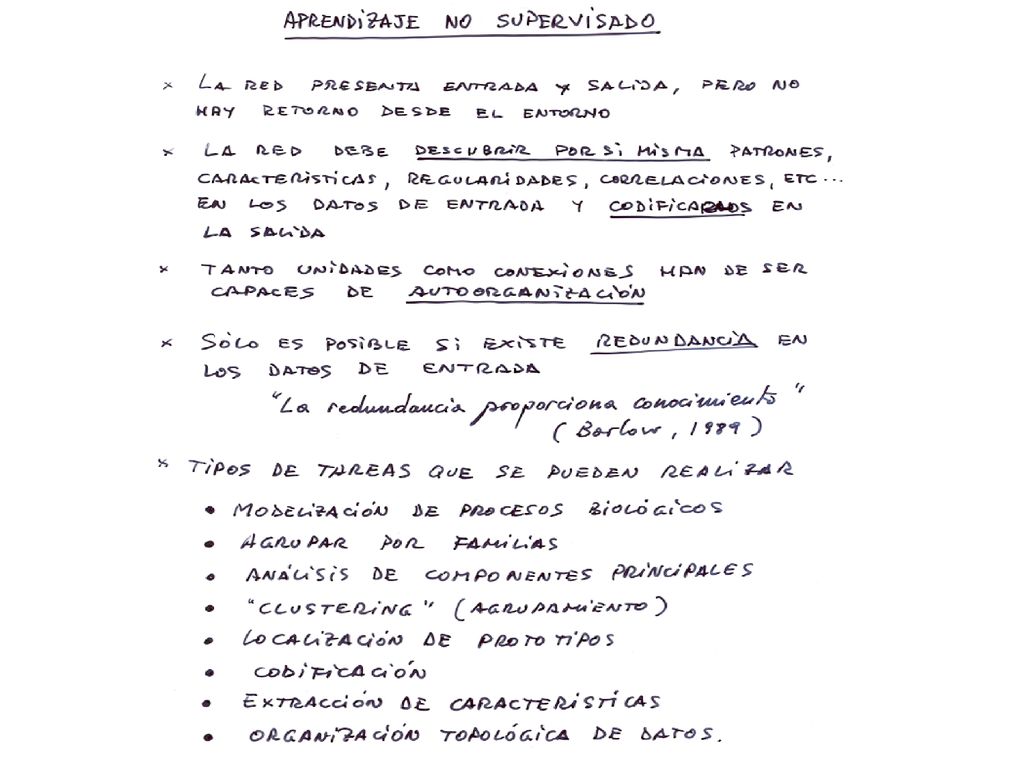 APRENDIZAJE NO SUPERVISADO
× LA RED PRESENTA ENTRADA Y SALIDA, PERO NO
HAY RETORNO DESDE EL ENTORNO
× LA RED DEBE DESCUBRIR POR SI MISMA PATRONES,
CARACTERISTICAS, REGULARIDADES, CORRELACIONES, ETC...
EN LOS DATOS DE ENTRADA Y CODIFICARLOS EN
LA SALIDA
× TANTO UNIDADES COMO CONEXIONES HAN DE SER
CAPACES DE AUTOORGANIZACIÓN
× SÓLO ES POSIBLE SI EXISTE REDUNDANCIA EN
LOS DATOS DE ENTRADA
"La redundancia proporciona conocimiento"
(Barlow, 1989)
× TIPOS DE TAREAS QUE SE PUEDEN REALIZAR
• MODELIZACIÓN DE PROCESOS BIOLÓGICOS
• AGRUPAR POR FAMILIAS
• ANÁLISIS DE COMPONENTES PRINCIPALES
• "CLUSTERING" (AGRUPAMIENTO)
• LOCALIZACIÓN DE PROTOTIPOS
• CODIFICACIÓN
• EXTRACCIÓN DE CARACTERISTÍCAS
• ORGANIZACIÓN TOPOLÓGICA DE DATOS.